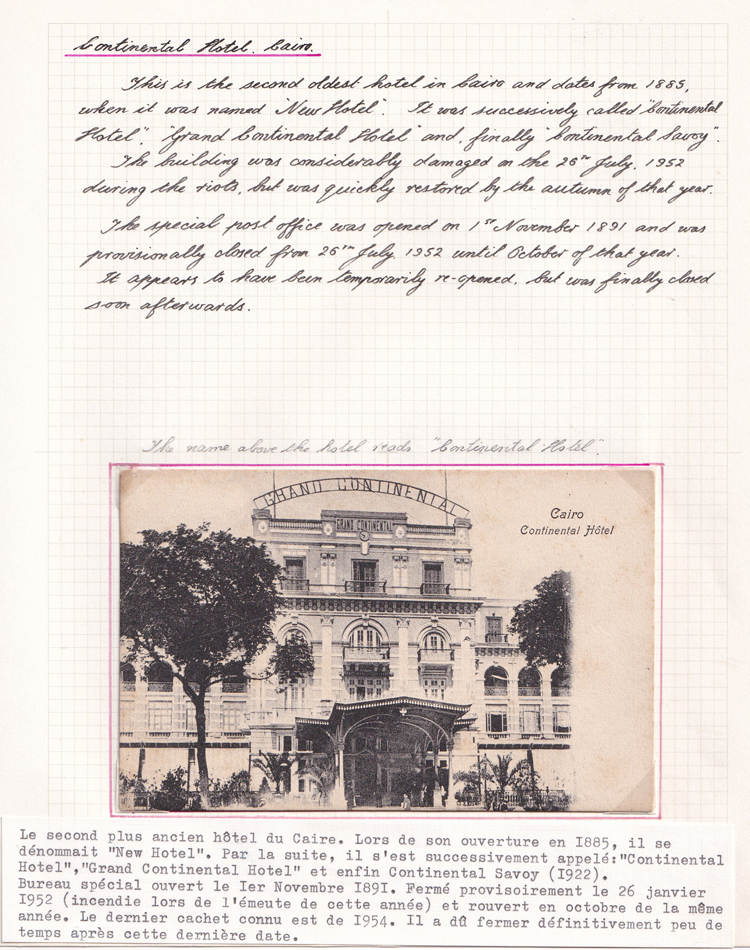 Continental Hotel. Cairo.
This is the second oldest hotel in Cairo and dates from 1885,
when it was named "New Hotel". It was successively called "Continental
Hotel", "Grand Continental Hotel" and, finally "Continental Savoy".
The building was considerably damaged on the 26th July, 1952
during the riots, but was quickly restored by the autumn of that year.
The special post office was opened on 1st November 1891 and was
provisionally closed from 26th July 1952 until October of that year.
It appears to have been temporarily re-opened, but was finally closed
soon afterwards.
The name above the hotel reads "Continental Hotel".
GRAND CONTINENTAL
GRAND CONTINENTAL
Cairo
Continental Hôtel
Le second plus ancien hôtel du Caire. Lors de son ouverture en I885, il se
dénommait "New Hotel". Par la suite, il s'est successivement appelé:"Continental
Hotel","Grand Continental Hotel" et enfin Continental Savoy (I922).
Bureau spécial ouvert le Ier Novembre I89I. Fermé provisoirement le 26 janvier
I952 (incendie lors de l'émeute de cette année) et rouvert en octobre de la même
année. Le dernier cachet connu est de I954. Il a dû fermer définitivement peu de
temps après cette dernière date.